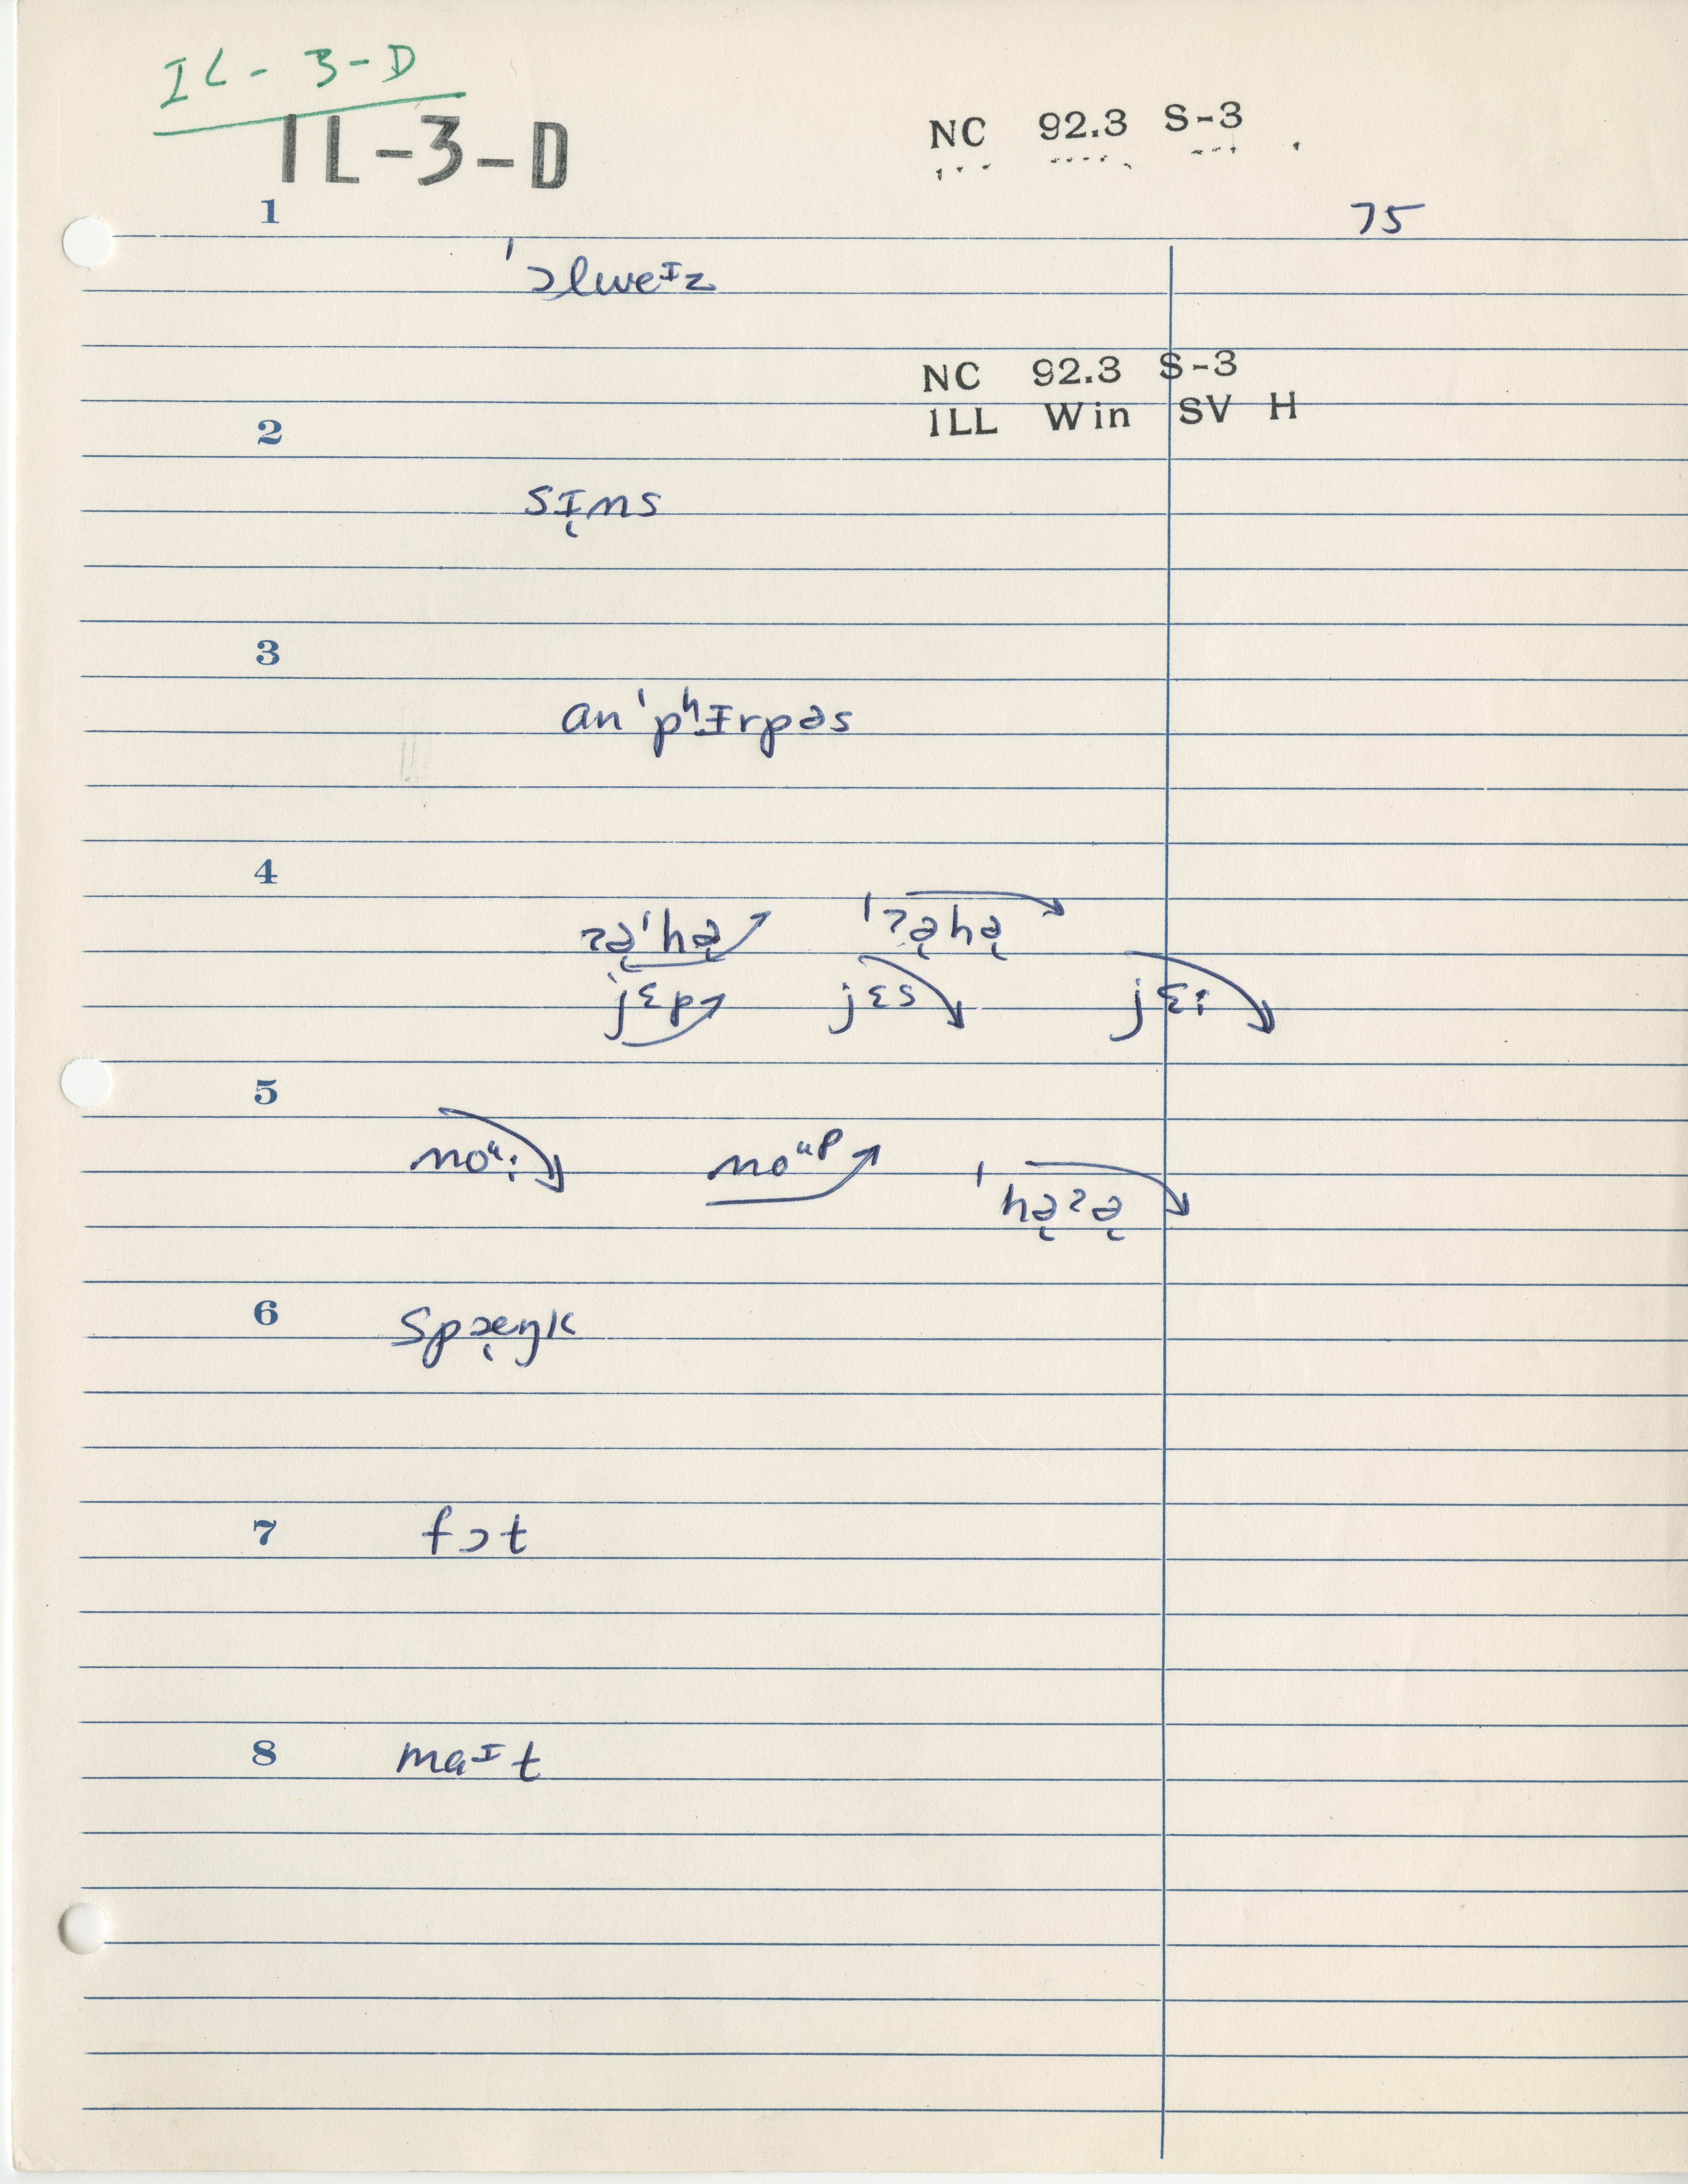 IL-3-D
IL-3-D
NC 92.3 S-3
75
1
ˈɔlweᶦz
NC 92.3 S-3
ILL Win SV H
2
sɪ̨ms
3
ɑnˈpʰɪrpəs
4
ʔə̨ˈhə̨ ˈʔə̨hə̨
jɛp jɛs jɛ:
5
noᵘ: noᵘp ˈhə̨ʔə̨
6
spæ̨ŋk
7
fɔt
8
maᶦt